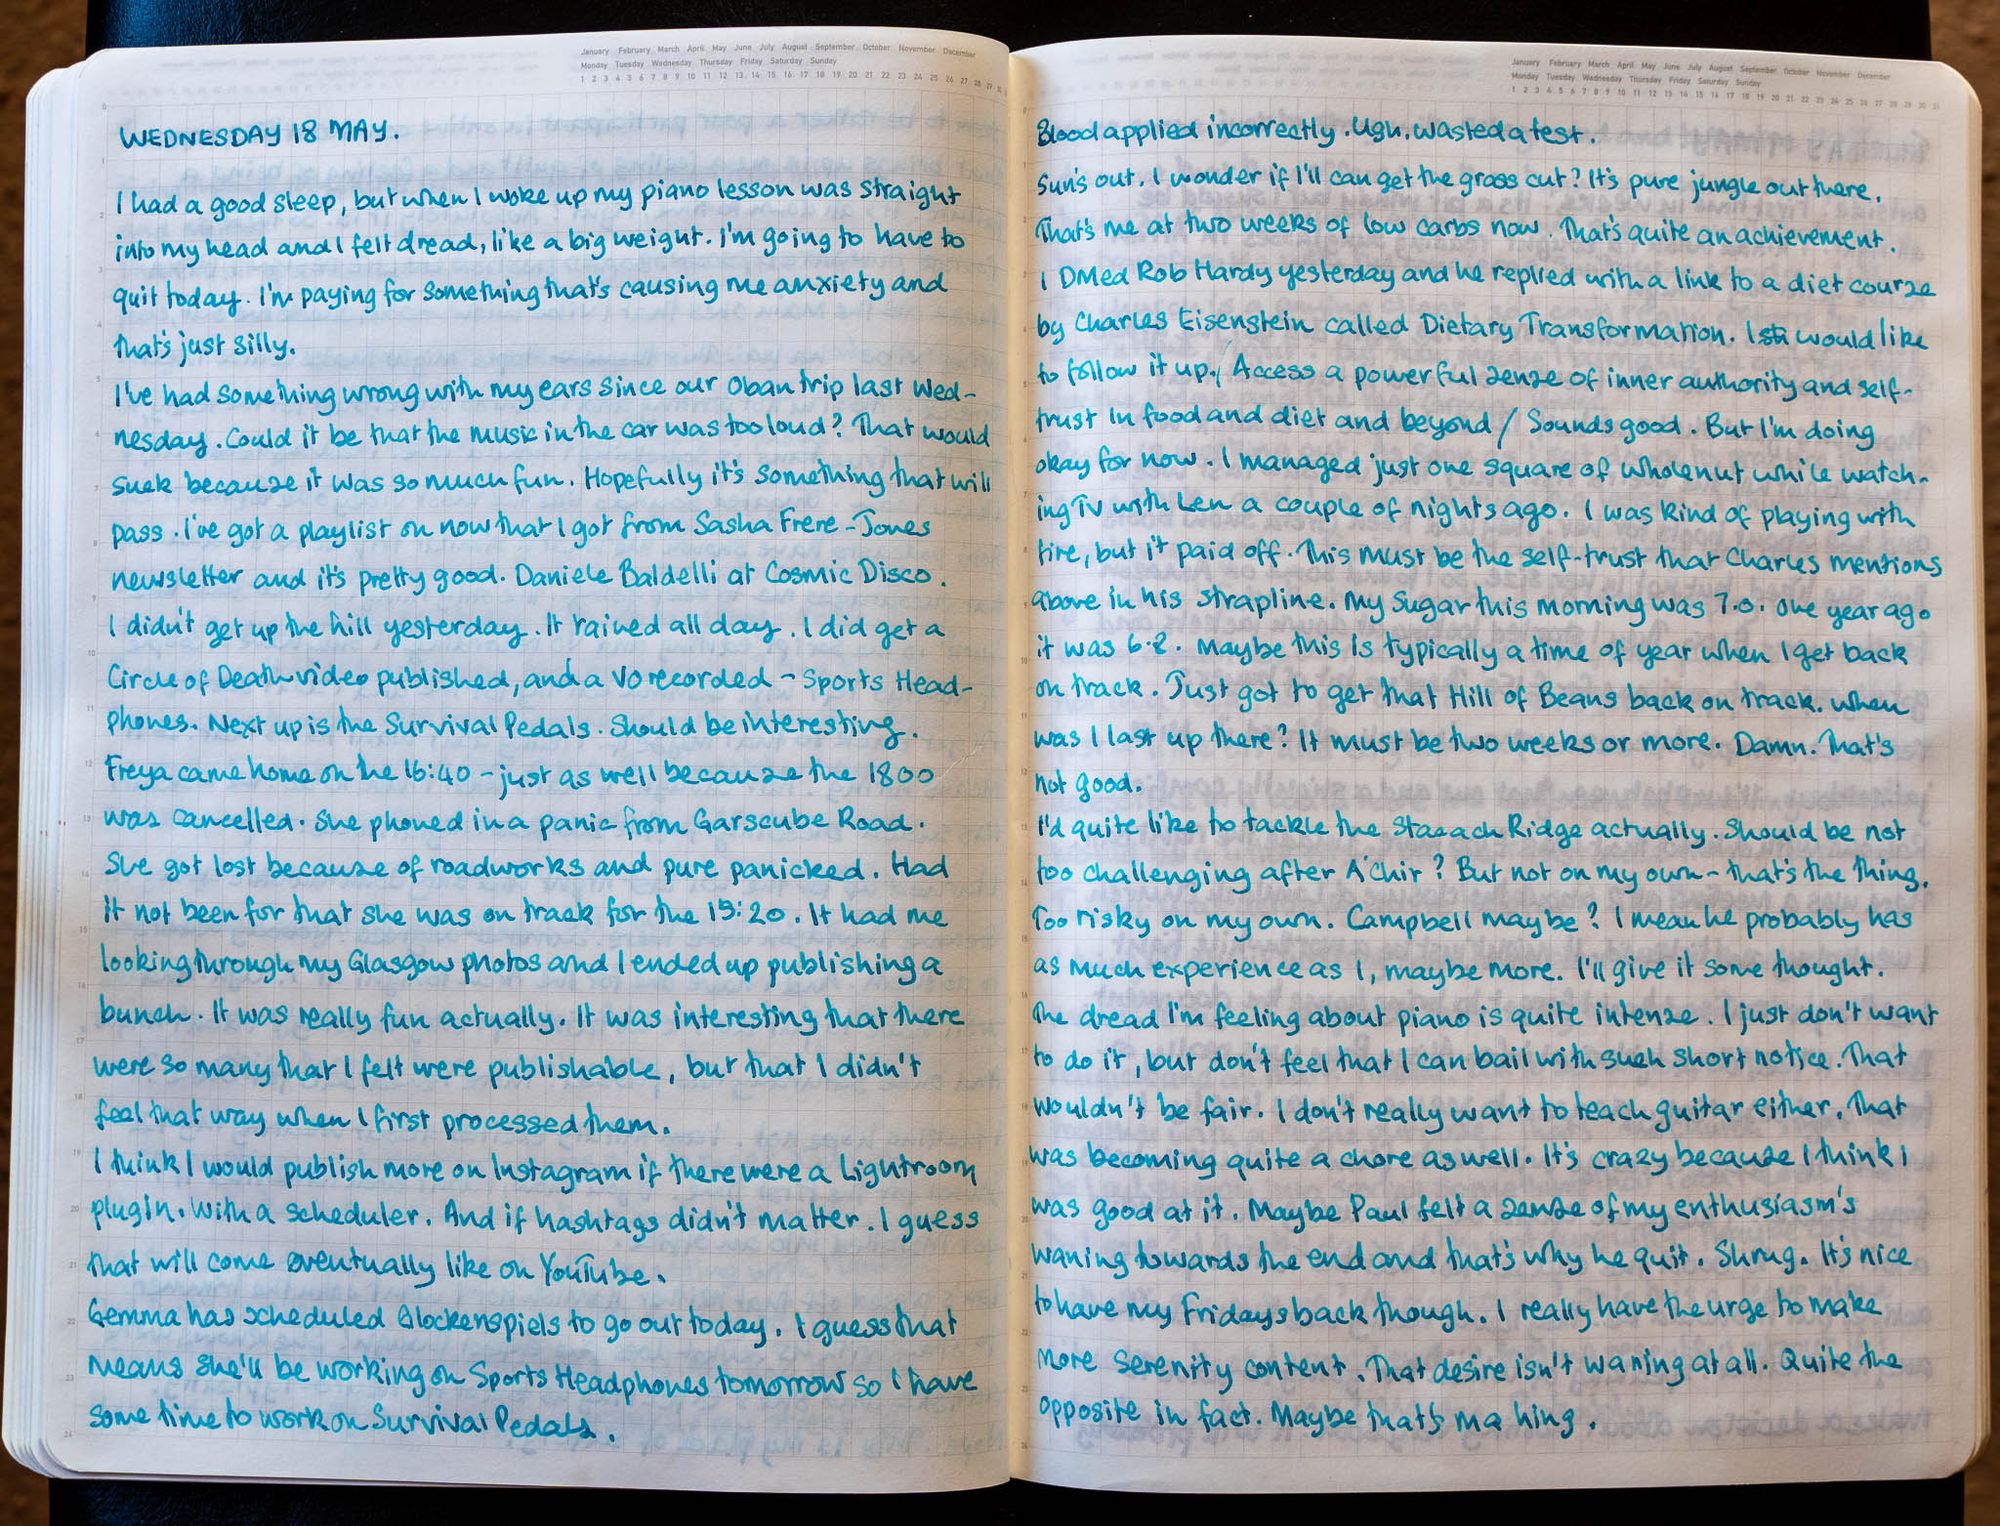 January February March April May June July August September October November December
Monday Tuesday Wednesday Thursday Friday Saturday Sunday
1 2 3 4 5 6 7 8 9 10 11 12 13 14 15 16 17 18 19 20 21 22 23 24 25 26 27 28 29 30 31
WEDNESDAY 18 MAY.
I had a good sleep, but when I woke up my piano lesson was straight
into my head and I felt dread, like a big weight. I'm going to have to
quit today. I'm paying for something that's causing me anxiety and
that's just silly.
I've had something wrong with my ears since our Oban trip last Wed-
nesday. Could it be that the music in the car was too loud? That would
suck because it was so much fun. Hopefully it's something that will
pass. I've got a playlist on now that I got from Sasha Frere-Jones
newsletter and it's pretty good. Daniele Baldelli at Cosmic Disco.
I didn't get up the hill yesterday. It rained all day. I did get a
Circle of Death video published, and a VO recorded - Sports Head-
phones. Next up is the Survival Pedals. Should be interesting.
Freya came home on the 16:40 - just as well because the 1800
was cancelled. She phoned in a panic from Garscube Road.
She got lost because of roadworks and pure panicked. Had
it not been for that she was on track for the 15:20. It had me
looking through my Glasgow photos and I ended up publishing a
bunch. It was really fun actually. It was interesting that there
were so many that I felt were publishable, but that I didn't
feel that way when I first processed them.
I think I would publish more on Instagram if there were a Lightroom
plugin. With a scheduler. And if hashtags didn't matter. I guess
that will come eventually like on YouTube.
Gemma has scheduled Glockenspiels to go out today. I guess that
means she'll be working on Sports Headphones tomorrow so I have
some time to work on Survival Pedals.
January February March April May June July August September October November December
Monday Tuesday Wednesday Thursday Friday Saturday Sunday
1 2 3 4 5 6 7 8 9 10 11 12 13 14 15 16 17 18 19 20 21 22 23 24 25 26 27 28 29 30 31
Blood applied incorrectly. Ugh. Wasted a test.
Sun's out. I wonder if I'll can get the grass cut? It's pure jungle out there.
That's me at two weeks of low carbs now. That's quite an achievement.
I DMed Rob Hardy yesterday and he replied with a link to a diet course
by Charles Eisenstein called Dietary Transformation. I would like
to follow it up. / Access a powerful sense of inner authority and self-
trust in food and diet and beyond / Sounds good. But I'm doing
okay for now. I managed just one square of wholenut while watch-
ing TV with Len a couple of nights ago. I was kind of playing with
fire, but it paid off. This must be the self-trust that Charles mentions
above in his strapline. My sugar this morning was 7.0. One year ago
it was 6.2. Maybe this is typically a time of year when I get back
on track. Just got to get that Hill of Beans back on track. When
was I last up there? It must be two weeks or more. Damn. That's
not good.
I'd quite like to tackle the Stacach Ridge actually. Should be not
too challenging after A'Chir? But not on my own - that's the thing.
Too risky on my own. Campbell maybe? I mean he probably has
as much experience as I, maybe more. I'll give it some thought.
The dread I'm feeling about piano is quite intense. I just don't want
to do it, but don't feel that I can bail with such short notice. That
wouldn't be fair. I don't really want to teach guitar either. That
was becoming quite a chore as well. It's crazy because I think I
was good at it. Maybe Paul felt a sense of my enthusiasm's
waning towards the end and that's why he quit. Shrug. It's nice
to have my Fridays back though. I really have the urge to make
more serenity content. That desire isn't waning at all. Quite the
opposite in fact. Maybe that's ma hing.